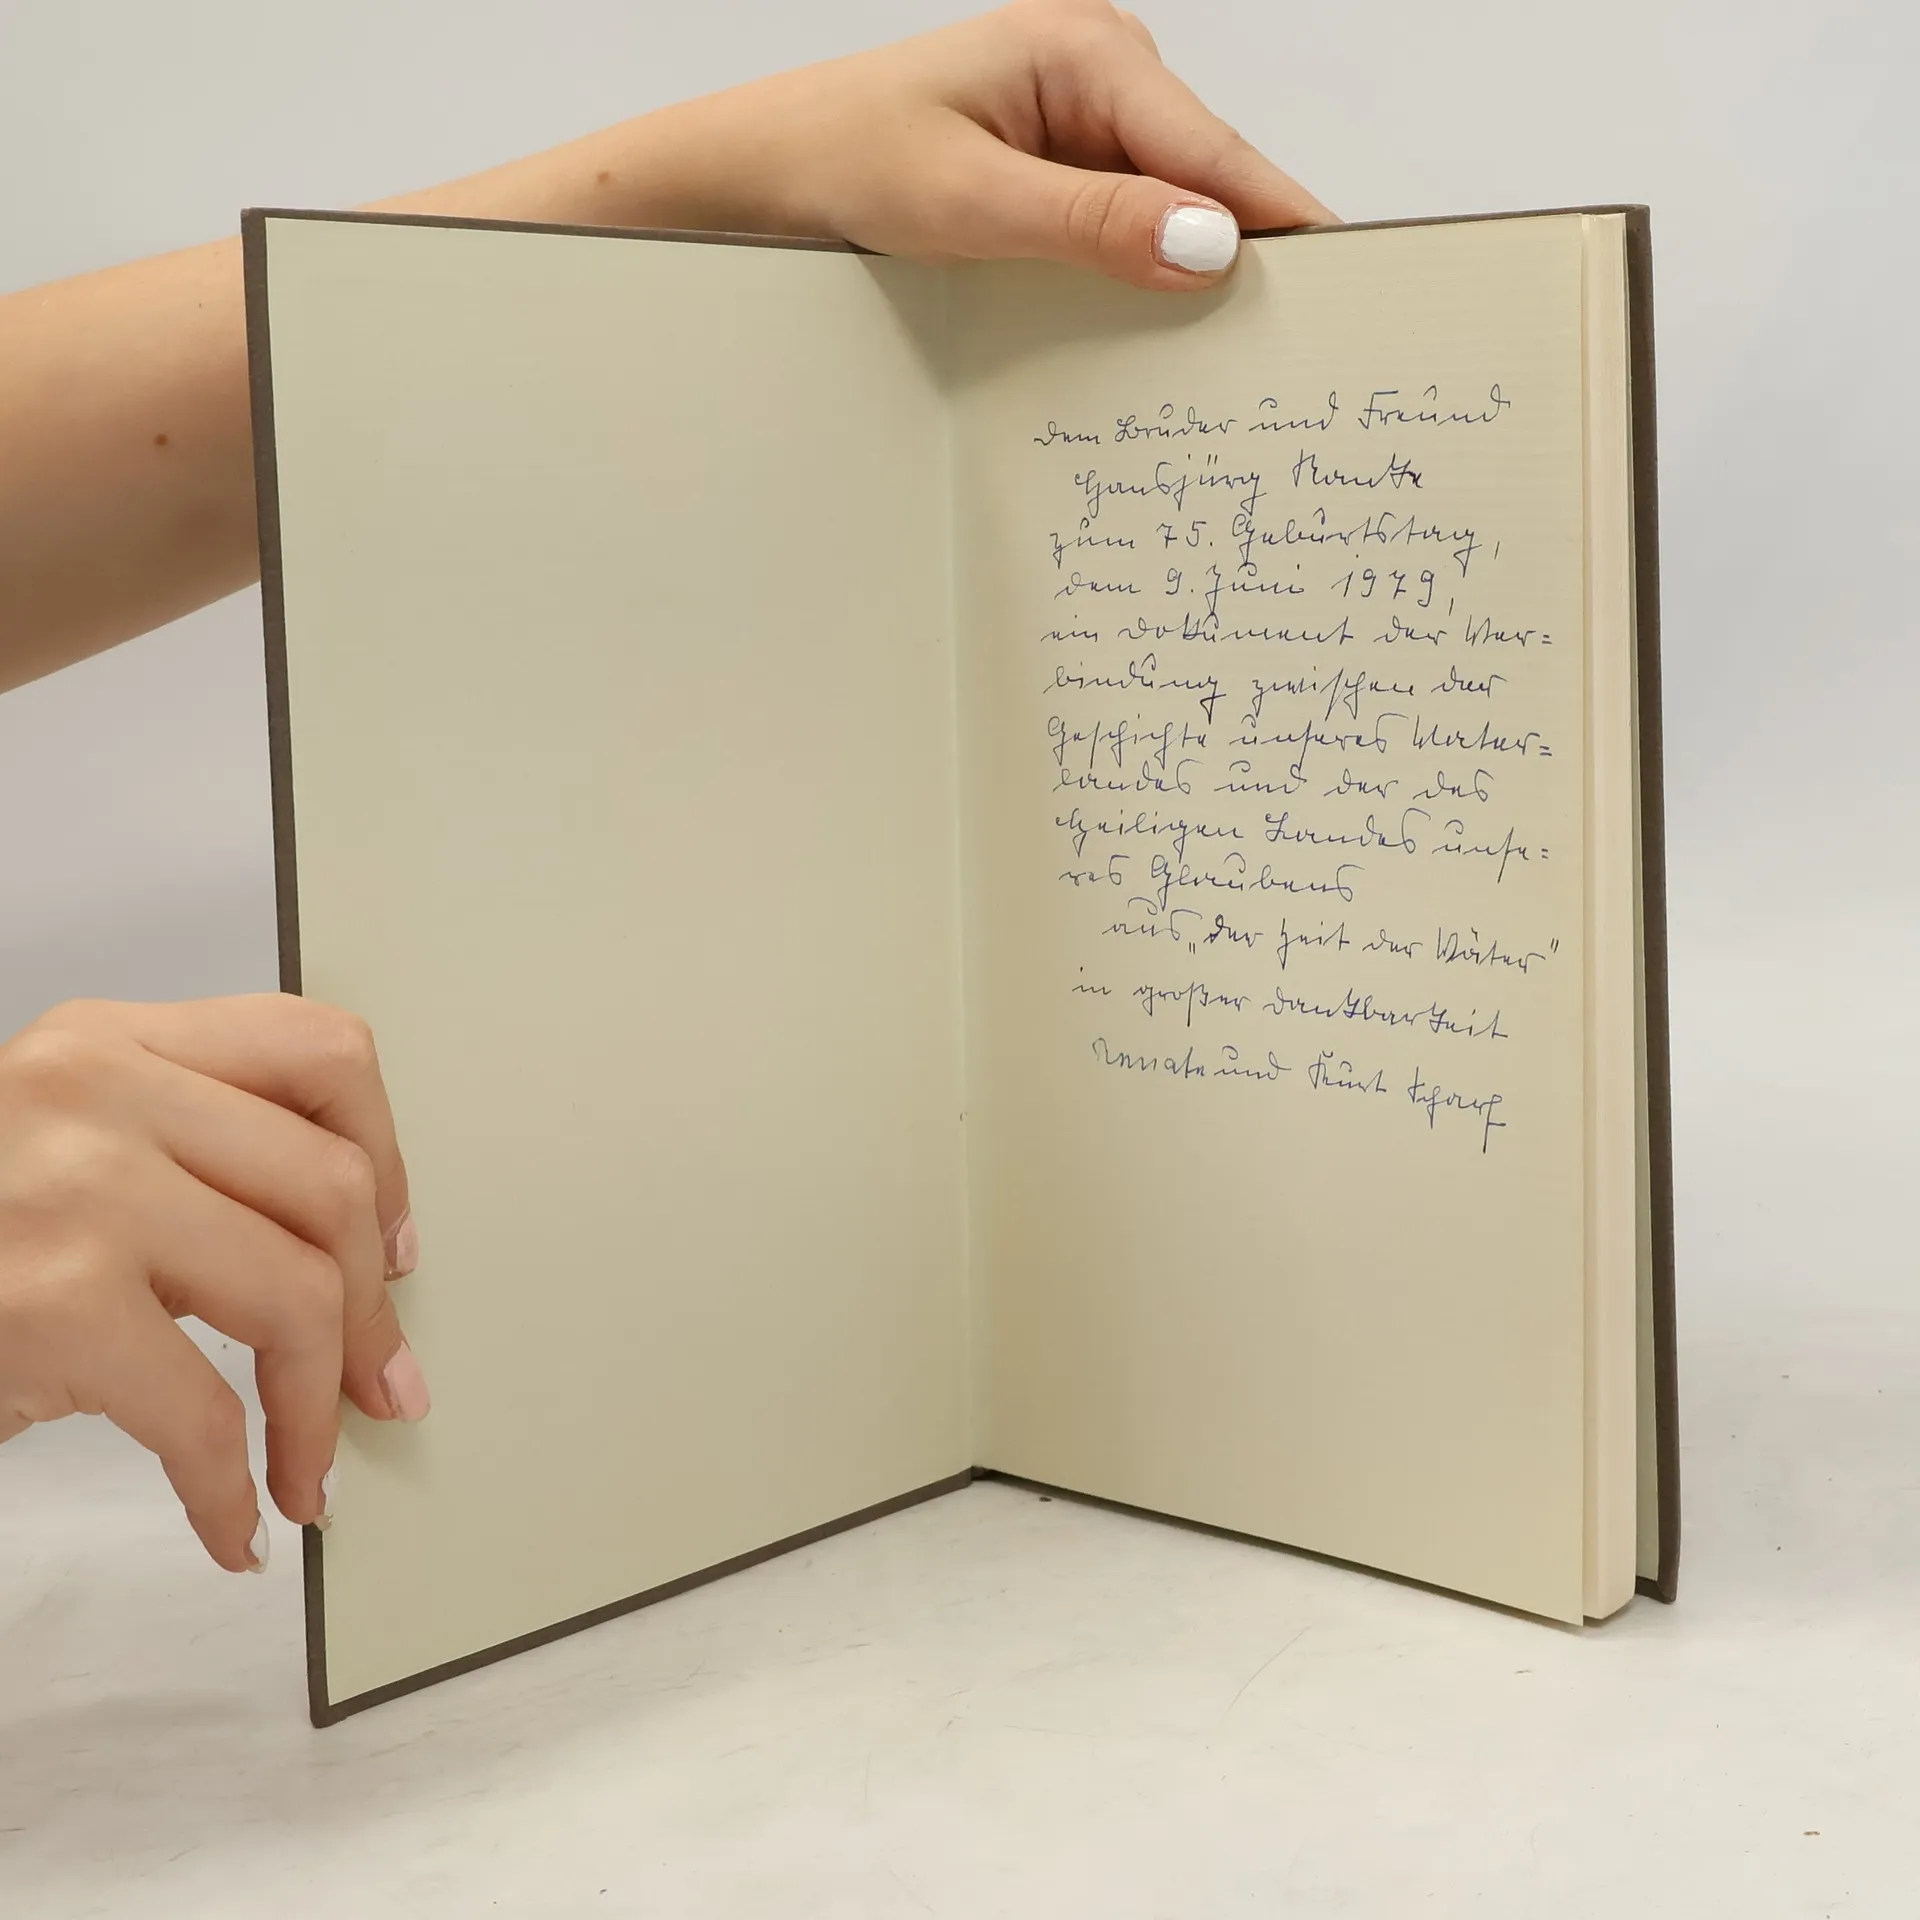 dem Bruder und Freund
Hansjürg Ranke
zum 75. Geburtstag,
dem 9. Juni 1979,
ein Dokument der Ver=
bindung zwischen der
Geschichte unseres Vater=
landes und der des
Heiligen Landes unse=
res Glaubens
aus „der Zeit der Väter"
in großer Dankbarkeit
Renate und Kurt Scharf